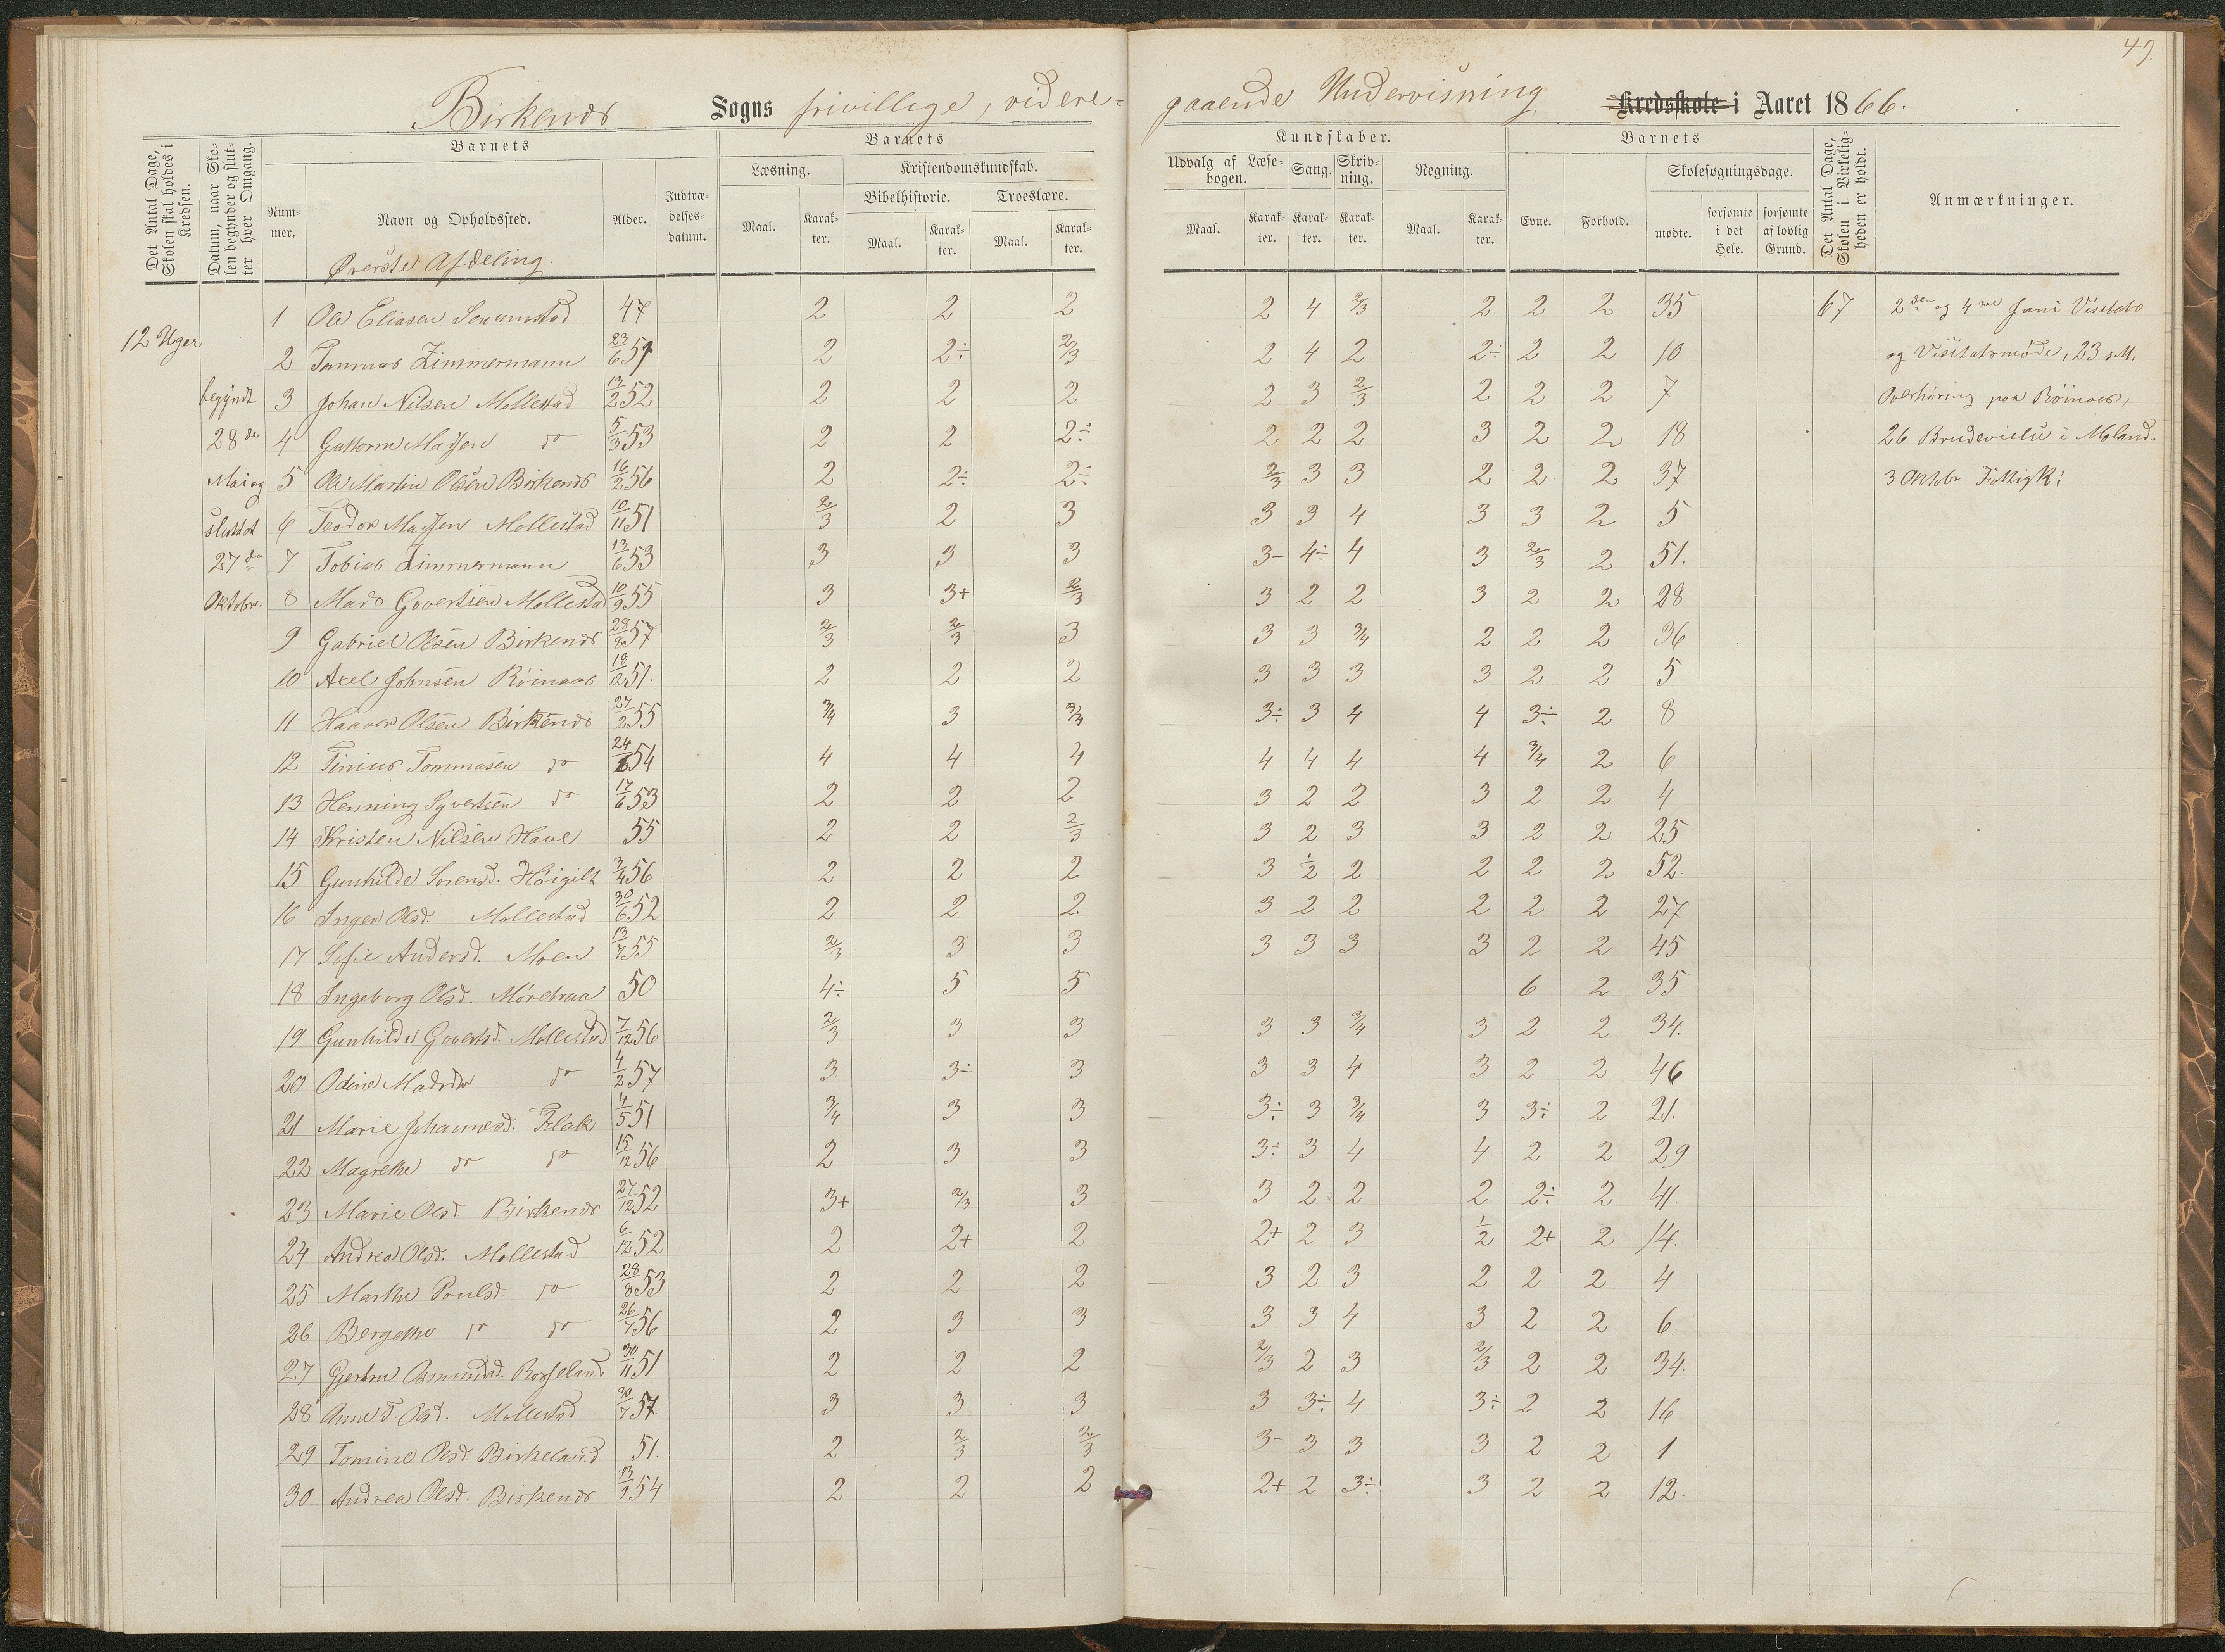 49.
Birkenes Sogns frivillige, videre=
gaaende Undervisning Kredsskole i Aaret 1866.
Det Antal Dage, Skolen skal holdes i Kredsen.
Datum, naar Skolen begynder og slutter hver Omgang.
Barnets
Nummer.
Navn og Opholdssted.
Alder.
Indtrædelsesdatum.
Barnets
Læsning.
Maal.
Karakter.
Kristendomskundskab.
Bibelhistorie.
Maal.
Karakter.
Troeslære.
Maal.
Karakter.
Kundskaber.
Udvalg af Læsebogen.
Maal.
Karakter.
Sang.
Karakter.
Skrivning.
Karakter.
Regning.
Maal.
Karakter.
Barnets
Evne.
Forhold.
Skolesøgningsdage.
mødte.
forsømte i det Hele.
forsømte af lovlig Grund.
Det Antal Dage, Skolen i Virkeligheden er holdt.
Anmærkninger.
Øverste Afdeling.
12 Uger
begyndt
28de
Mai og
sluttet
27de
Oktobr.
1 Ole Eliasen 47 2 2 2 2 4 2/3 2 2 2 35 67
2 Tommas Zimmermann 23/6 51 2 2÷ 2/3 2 4 2 2÷ 2 2 10
3 Johan Nilsen Mollestad 13/2 52 2 2 2 2 3 2/3 2 2 2 7
4 Guttorm Madsen do 5/3 53 2 2 2÷ 2 2 2 3 2 2 18
5 Ole Martin Olsen Birkenes 16/2 56 2 2÷ 2÷ 2/3 3 3 2 2 2 37
6 Teodor Madsen Mollestad 10/11 51 2/3 2 3 3 3 4 3 3 2 5
7 Tobias Zimmermann 13/6 53 3 3 3 3- 4÷ 4 3 2/3 2 51.
8 Mads Govertsen Mollestad 10/9 55 3 3+ 2/3 3 2 2 3 2 2 28
9 Gabriel Olsen Birkenes 29/8 57 2/3 2/3 3 3 3 3/4 2 2 2 36
10 Axel Johnsen Røinaas 18/12 51. 2 2 2 3 3 3 3 2 2 5
11 Haaver Olsen Birkenes 27/2 55 3/4 3 3/4 3÷ 3 4 4 3÷ 2 8
12 Tinius Tommasen do 24/6 54 4 4 4 4 4 4 4 3/4 2 6
13 Henning Syvertsen do 17/6 53 2 2 2 3 2 2 3 2 2 4
14 Kristen Nilsen Have 55 2 2 2/3 3 2 3 3 2 2 25
15 Gunhilde Sorensd. Høigilt 3/4 56 2 2 2 3 1/2 2 2 2 2 52.
16 Inger Olsd. Mollestad 30/6 52 2 2 2 3 2 2 2 2 2 27
17 Sofie Andersd. Moen 13/7 55 2/3 3 3 3 3 3 3 2 2 45
18 Ingeborg Olsd. Mørebraa 50 4÷ 5 5 6 2 35
19 Gunhilde Govertsd. Mollestad 7/12 56 2/3 3 3 3 3 3/4 3 2 2 34.
20 Odine Madsdr do 4/2 57 3 3÷ 3 3 3 4 3 2 2 46
21 Marie Johannesd. Flak 4/5 51 3/4 3 3 3÷ 3 3/4 3 3÷ 2 21.
22 Magrethe do do 15/12 56 2 3 3 3÷ 3 4 4 2 2 29
23 Marie Olsd. Birkenes 27/12 52 3+ 2/3 3 3 2 2 2 2÷ 2 41.
24 Andrea Olsd. Mollestad 6/12 52 2 2+ 2 2+ 2 3 1/2 2+ 2 14.
25 Marthe Poulsd. do 28/8 53 2 2 2 3 2 3 2 2 2 4
26 Bergethe do do 26/7 56 2 3 3 3 3 4 3 2 2 6
27 Gjertru Asmundsd. Rosseland 30/11 51 2 2 2 2/3 2 3 2/3 2 2 34.
28 Anne T. Olsd. Mollestad 30/7 57 3 3 3 3 3÷ 4 3÷ 2 2 16
29 Tomine Olsd. Birkeland 51. 2 2/3 2/3 3- 3 3 3 2 2 1
30 Andrea Olsd. Birkenes 13/9 54 2 2 2 2+ 2 3÷ 3 2 2 12.
2den og 4de Juni Visitats
og Visitatsmøde, 23 s. M.
Overhøring paa Røinaas,
26 Brudevielse i Moland.
3 Oktbr